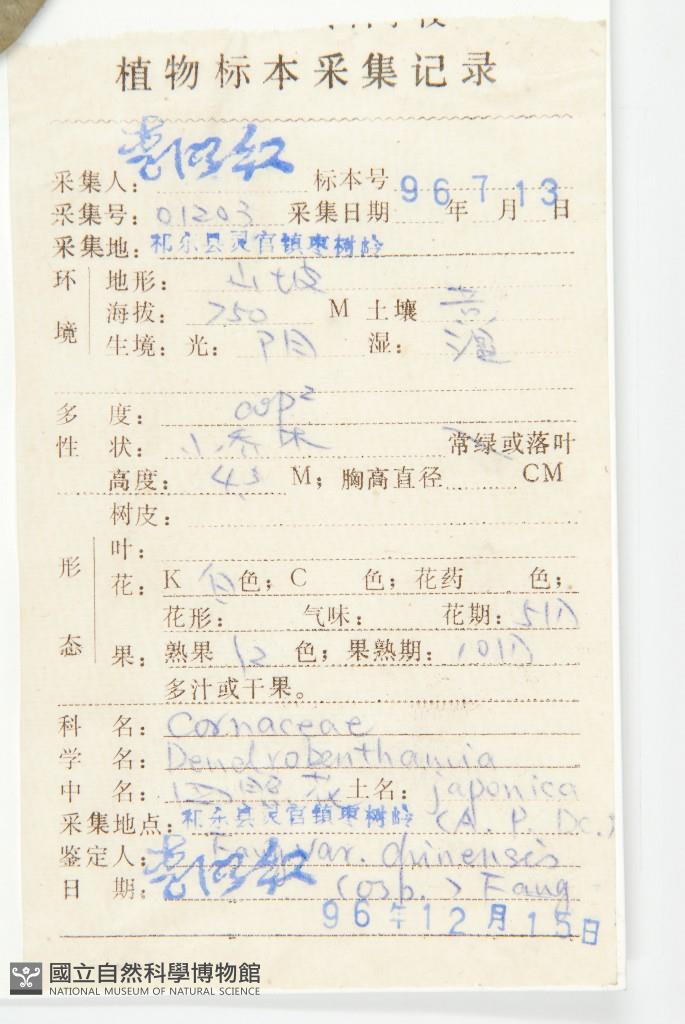 植物标本采集记录
采集人: 标本号
采集号: 01203 采集日期 96年7月13日
采集地: 祁东县灵官镇枣树岭
环境 地形: 山坡
海拔: 750 M 土壤 黄
生境: 光: 阴 湿: 湿
多度: cop²
性状: 小乔木 常绿或落叶
高度: 4.3 M; 胸高直径 CM
形态 树皮:
叶:
花: K 白色; C 色; 花药 色;
花形: 气味: 花期: 5月
果: 熟果 红色; 果熟期: 10月
多汁或干果。
科名: Cornaceae
学名: Dendrobenthamia
中名: 四照花 土名: japonica
采集地点: 祁东县灵官镇枣树岭 (A. P. DC.)
鉴定人: Fang var. chinensis
日期: (osp.) Fang
96年12月15日
國立自然科學博物館
NATIONAL MUSEUM OF NATURAL SCIENCE